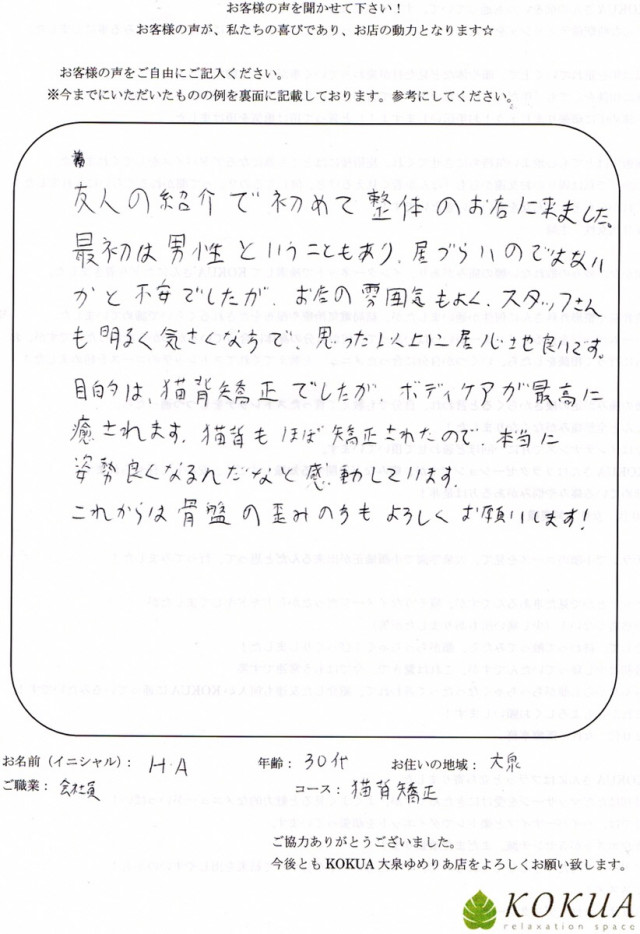 お客様の声を聞かせて下さい！
お客様の声が、私たちの喜びであり、お店の動力となります☆
お客様の声をご自由にご記入ください。
※今までにいただいたものの例を裏面に記載しております。参考にしてください。
友人の紹介で初めて整体のお店に来ました。
最初は男性ということもあり、居づらいのではない
かと不安でしたが、お店の雰囲気もよく、スタッフさん
も明るく気さくな方で、思った以上に居心地良いです。
目的は、猫背矯正でしたが、ボディケアが最高に
癒されます。猫背もほぼ矯正されたので、本当に
姿勢良くなるんだなと感動しています。
これからは骨盤の歪みの方もよろしくお願いします！
お名前（イニシャル）： H.A 年齢： 30代 お住いの地域： 大泉
ご職業： 会社員 コース： 猫背矯正
ご協力ありがとうございました。
今後とも KOKUA 大泉ゆめりあ店をよろしくお願い致します。
KOKUA
relaxation space